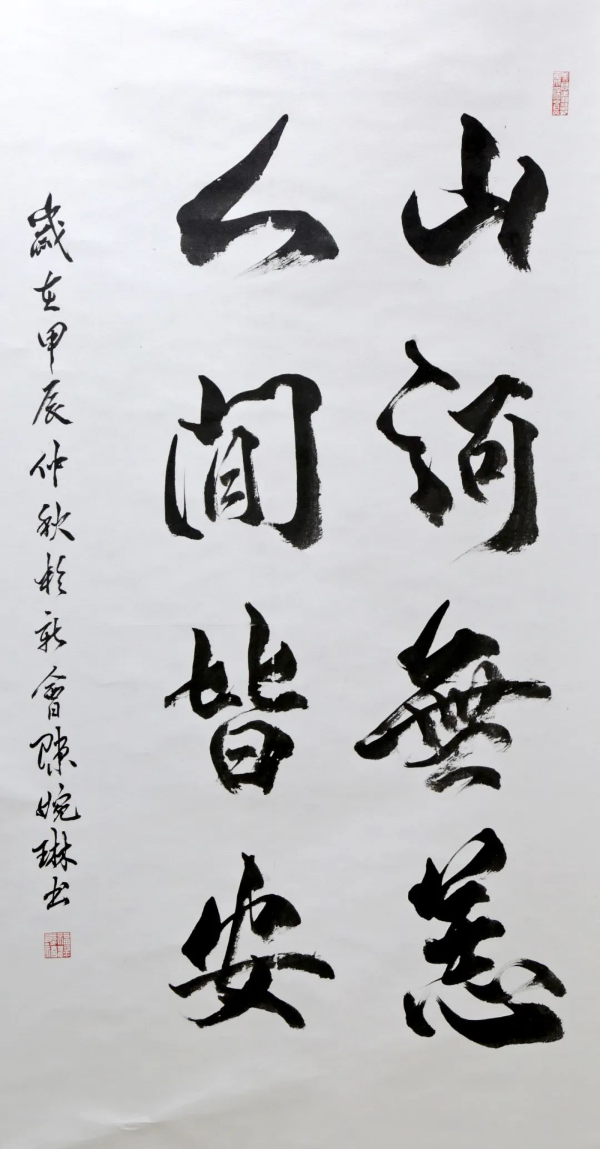 山河無恙
人間皆安
歲在甲辰仲秋於新會陳婉琳书